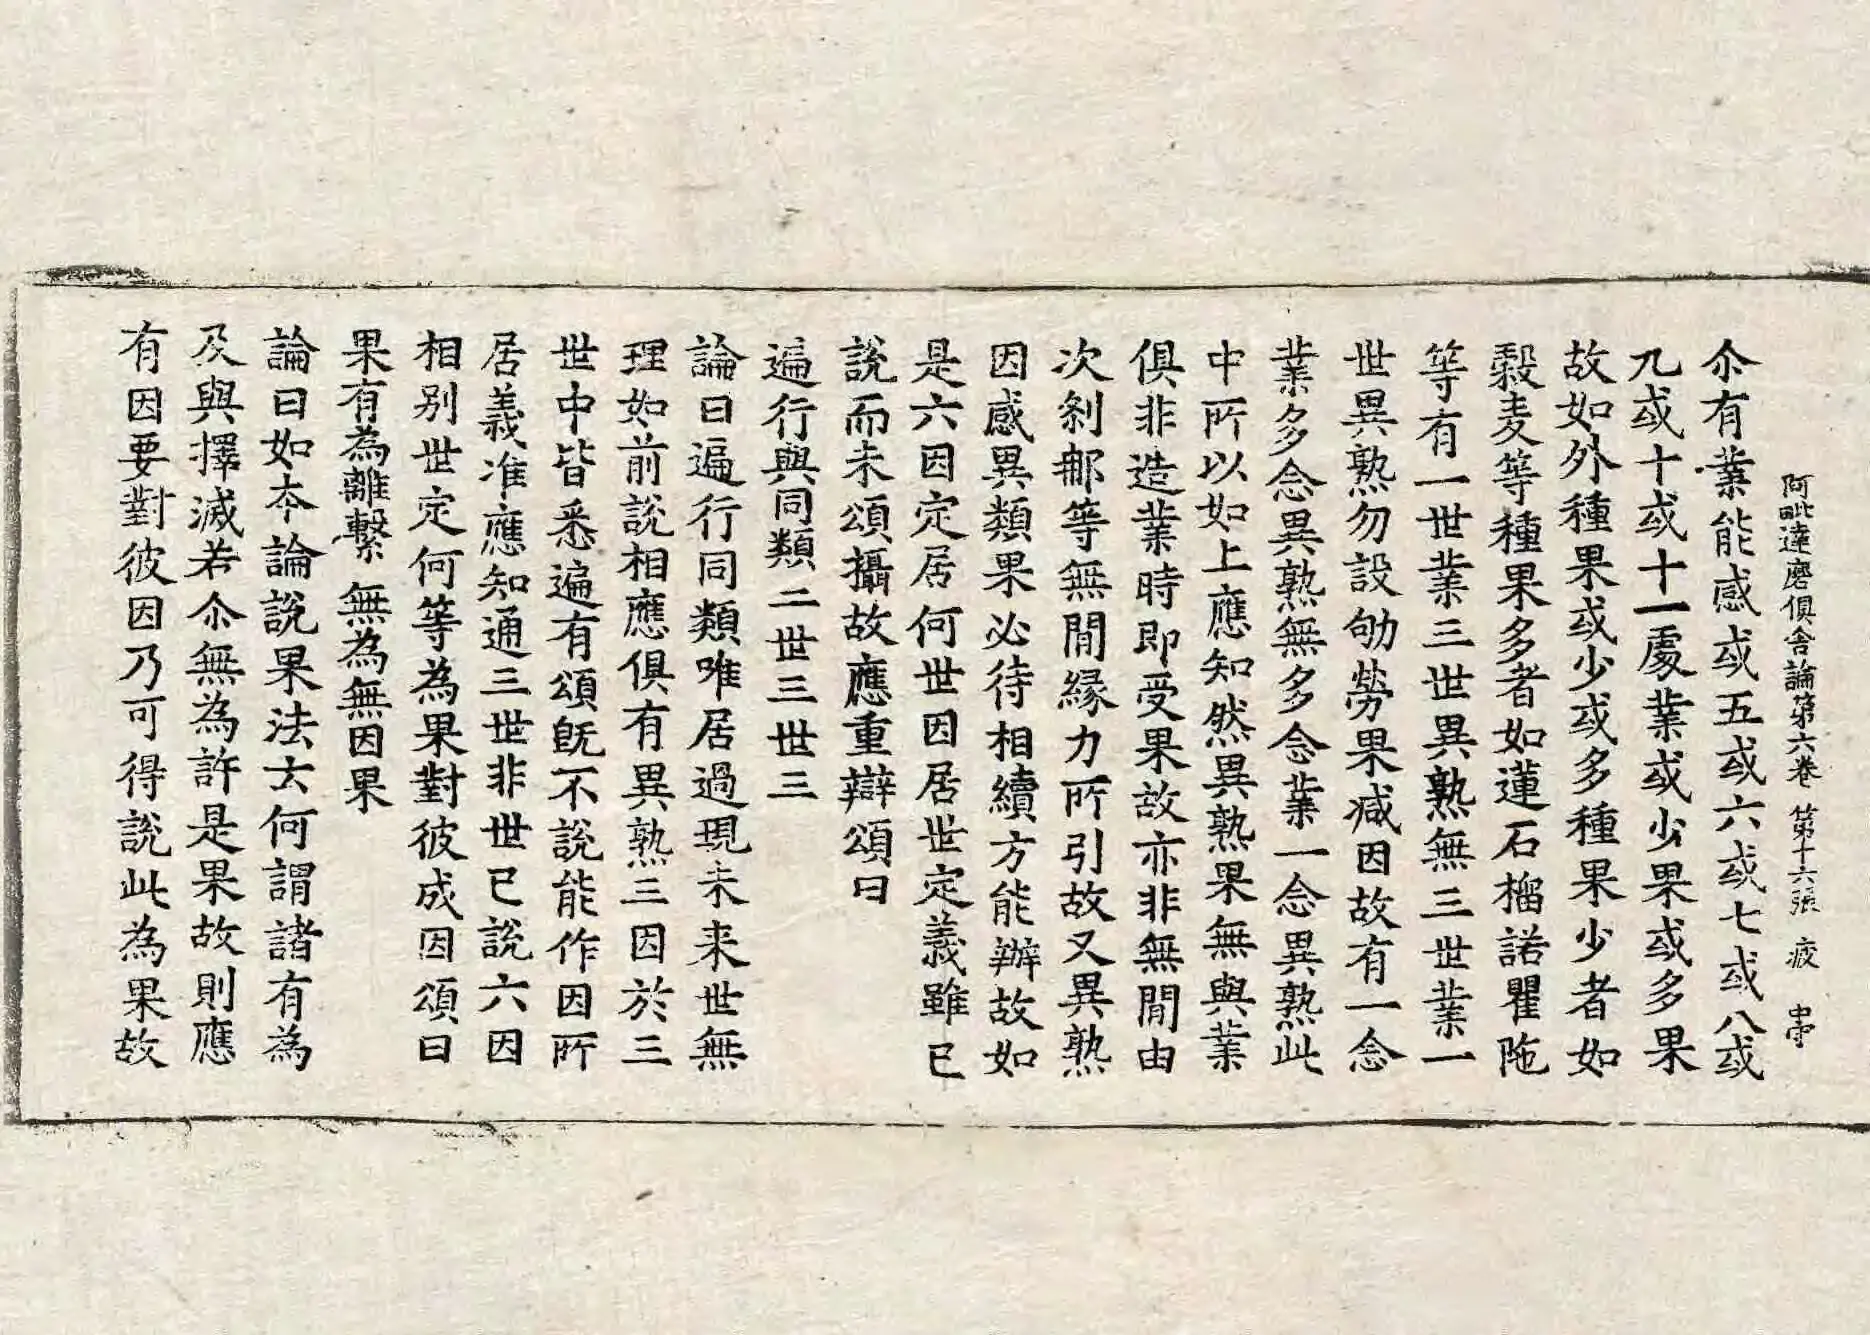 阿毗達磨俱舍論第六卷 第十六張 疲
尒有業能感或五或六或七或八或
九或十或十一處業或少果或多果
故如外種果或少或多種果少者如
穀麦等種果多者如蓮石榴諾瞿陁
等有一世業三世異熟無三世業一
世異熟勿設劬勞果減因故有一念
業多念異熟無多念業一念異熟此
中所以如上應知然異熟果無與業
俱非造業時即受果故亦非無間由
次剎那等無間緣力所引故又異熟
因感異類果必待相續方能辦故如
是六因定居何世因居世定義雖已
說而未頌攝故應重辯頌曰
遍行與同類 二世三世三
論曰遍行同類唯居過現未來世無
理如前說相應俱有異熟三因於三
世中皆悉遍有頌旣不說能作因所
居義准應知通三世非世已說六因
相別世定何等為果對彼成因頌曰
果有為離繫 無為無因果
論曰如本論說果法云何謂諸有為
及與擇滅若尒無為許是果故則應
有因要對彼因乃可得說此為果故